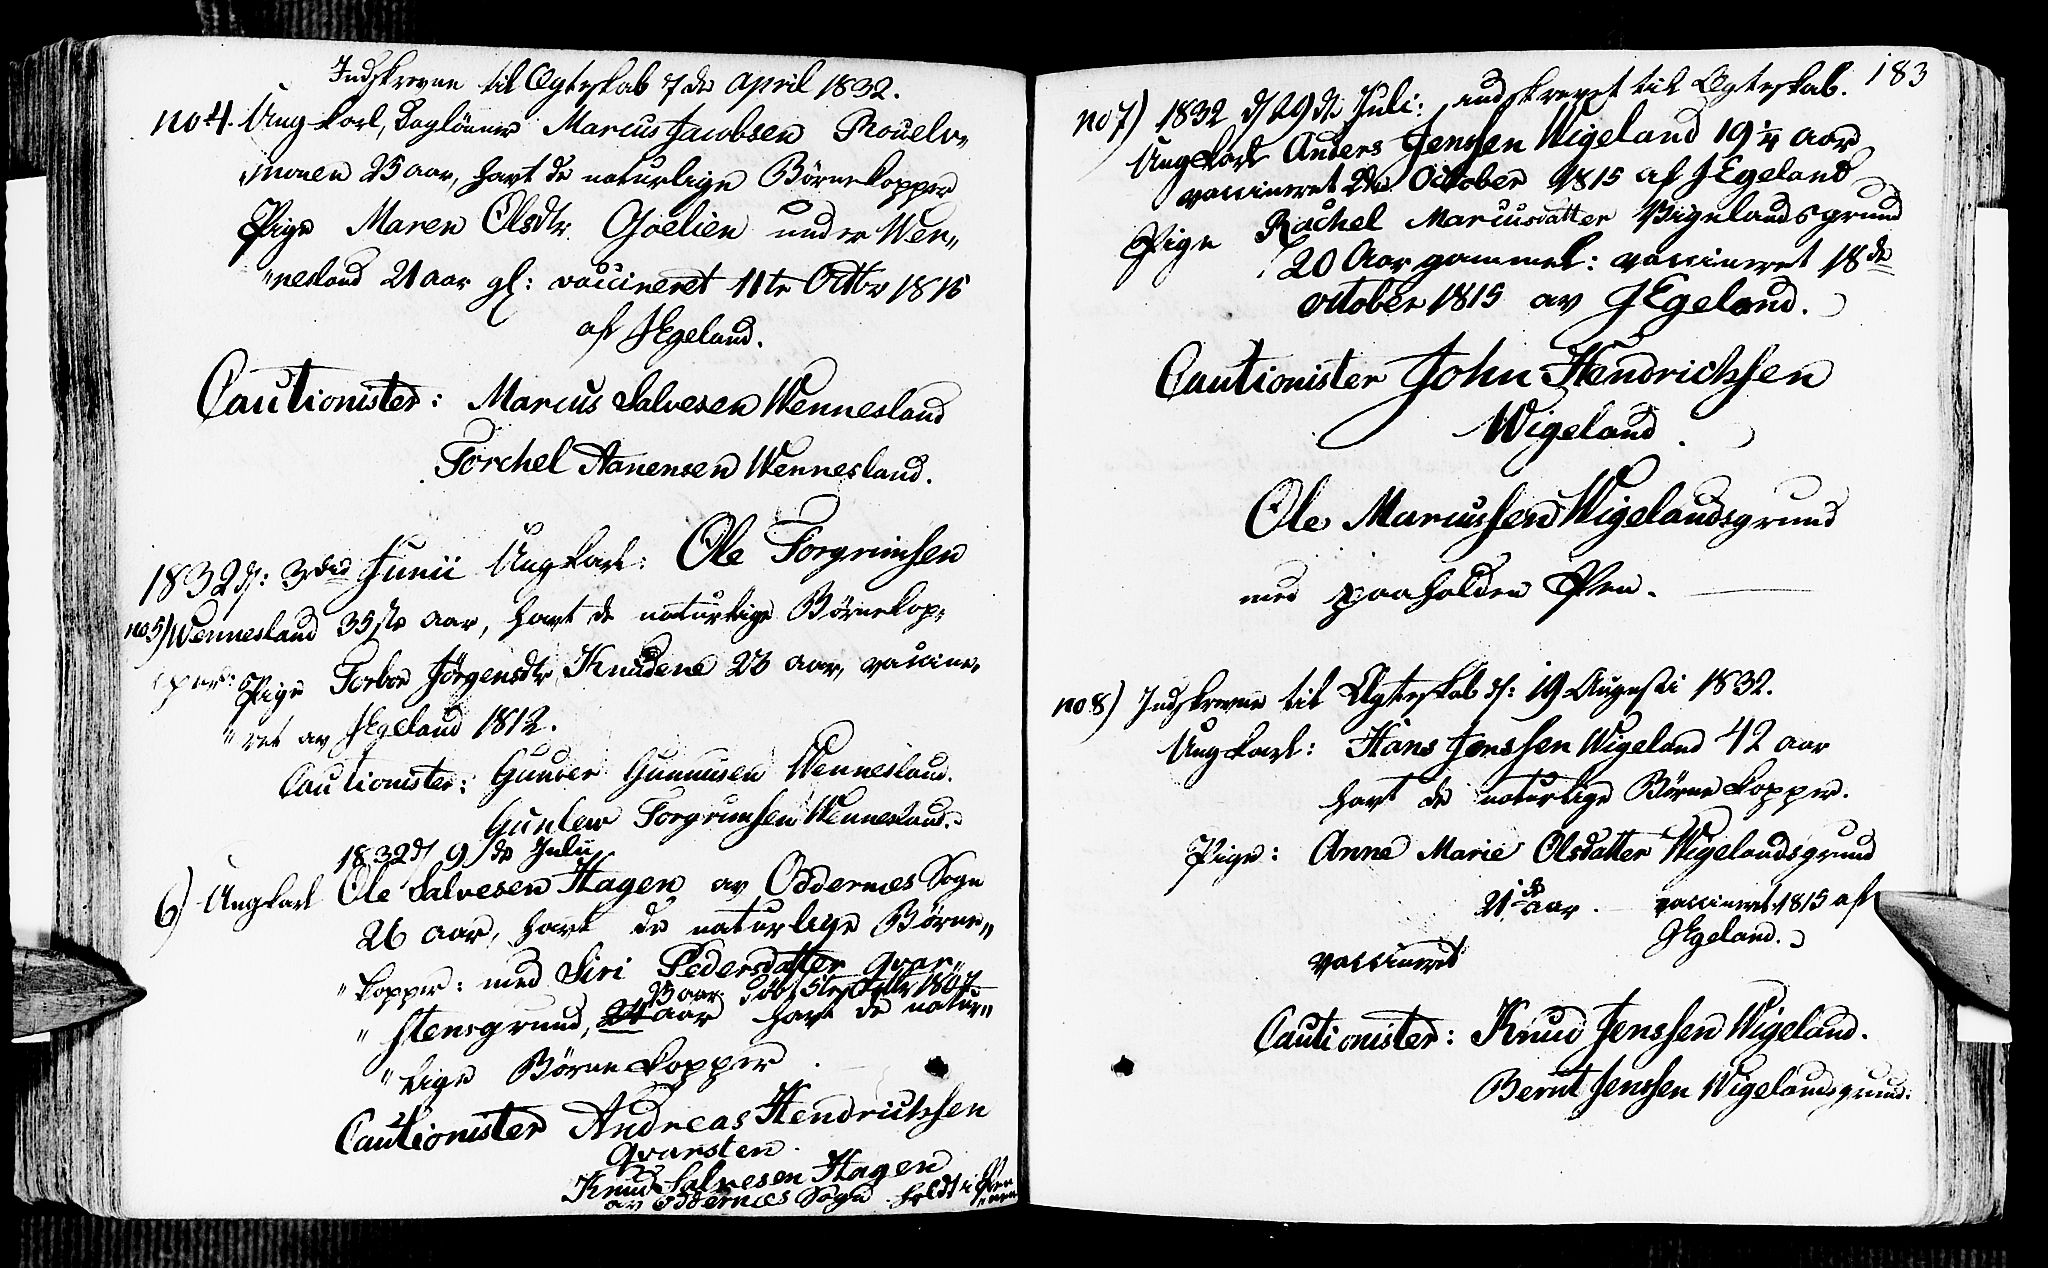 Indskrevne til Ægteskab 7de April 1832.
no 4. Ungkarl, Daglönner Marcus Jacobsen
monen 25 aar, havt de naturlige Börnekopper
Pige Maren Olsdtr. under Wen„
„nesland 21 aar gl: vaccineret 11te Octbr 1815
af JEgeland.
Cautionister: Marcus Salvesen Wennesland
Torchel Aanensen Wennesland.
1832 d: 3die Junii Ungkarl: Ole Torgrimsen
no 5) Wennesland 35te aar, havt de naturlige Börnekop„
per: Pige Torbor Jörgensdtr Knudene 23 aar, vaccine„
„ret av JEgeland 1812.
Cautionister: Gunder Gunnusen Wennesland.
Gunlew Torgrimsen Wennesland.
1832 d 9de Julii
6) Ungkarl Ole Salvesen Hagen av Oddernes Sogn
26 aar, havt de naturlige Börne„
„kopper: med Siri Pedersdatter Qvar„
25 aar. döbt Septbr 1807
„stensgrund, aar havt de natur„
„lige Börnekopper
Cautionister Andreas Hendrichsen
Qvarsten.
Knud Salvesen Hagen
av Oddernes Sogn holdt i Pen
„nen
183
no 7) 1832 d 29de Juli: indskrevet til Ægteskab.
Ungkarl Anders Jenssen Wigeland 19 1/4 aar
vaccineret 2den October 1815 af JEgeland
Pige Rachel Marcusdatter Vigelandsgrund
20 Aar gammel: vaccineret 18de
october 1815 av JEgeland.
Cautionister John Hendrichsen
Wigeland.
Ole Marcussen Wigelandsgrund
med paaholden Pen.
no 8) Indskrevne til Ægteskab d: 19 Augusti 1832.
Ungkarl: Hans Jenssen Wigeland 42 aar
havt de naturlige Börnekopper.
Pige: Anne Marie Olsdatter Wigelandsgrund
21de aar. vaccineret 1815 af
JEgeland.
vaccineret
Cautionister: Knud Jenssen Wigeland.
Bernt Jenssen Wigelandsgrund.